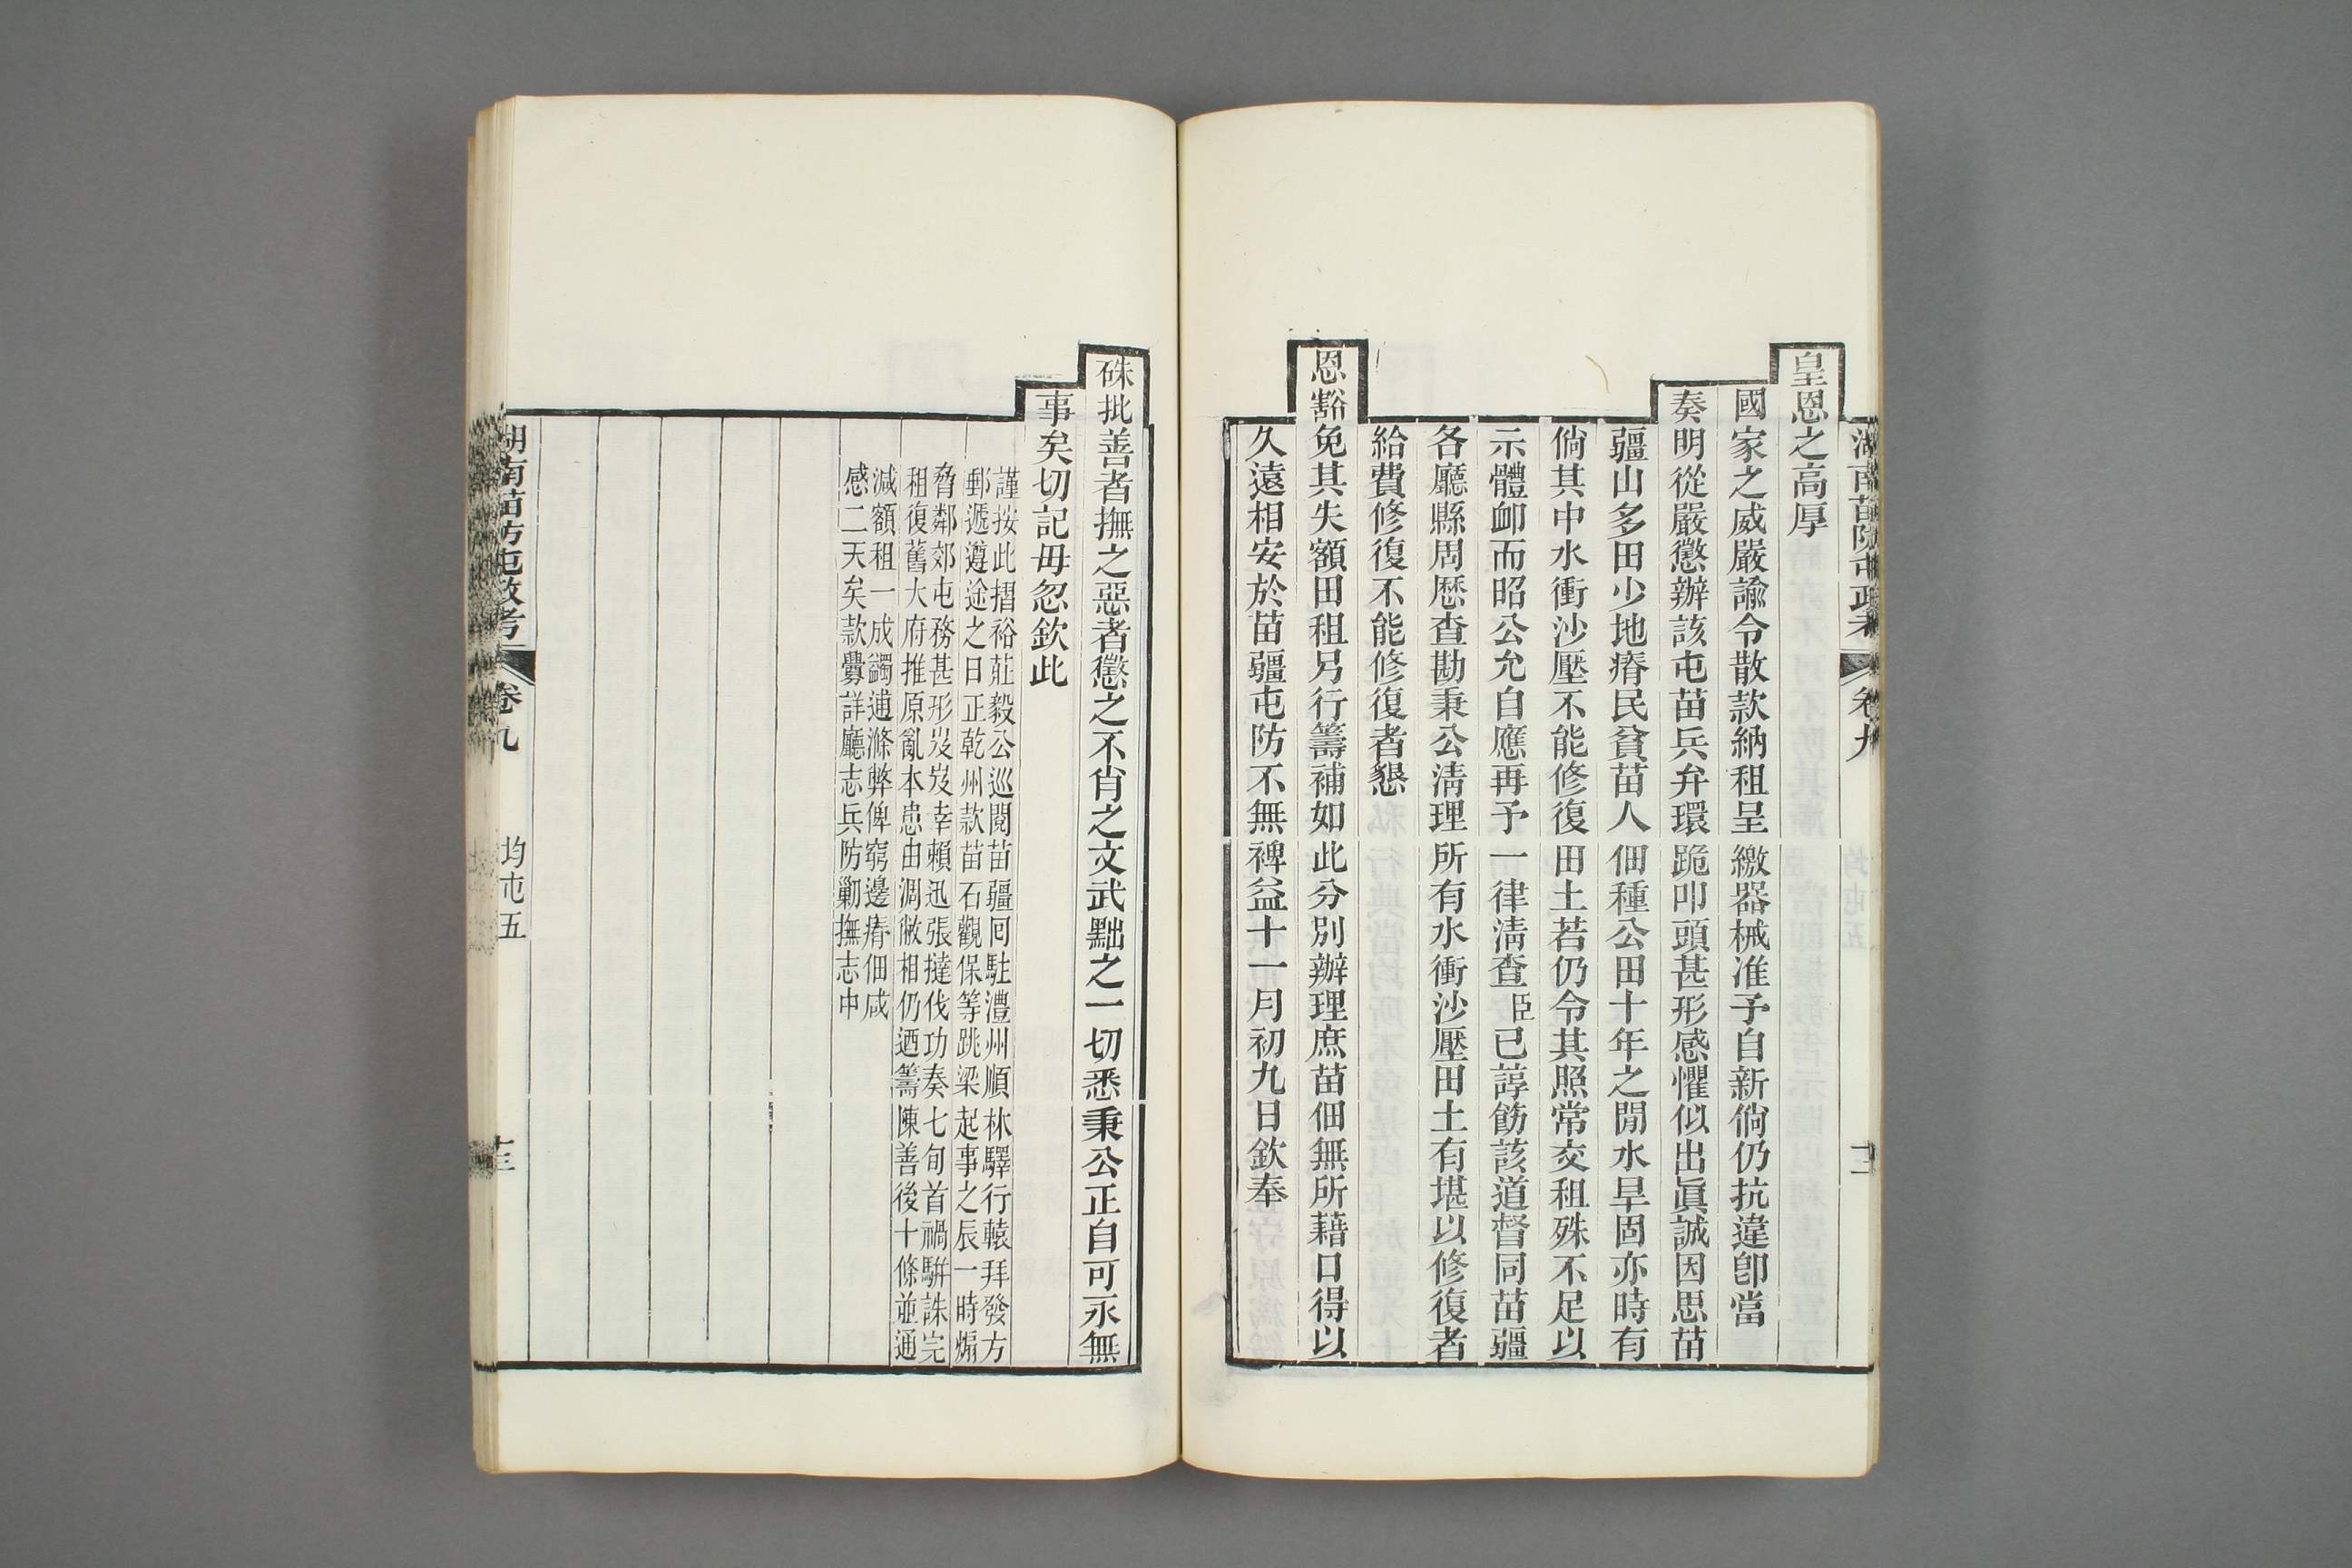 湖南苗防屯政考 卷九 均屯五 十二
皇恩之高厚
國家之威嚴諭令散款納租呈繳器械准予自新倘仍抗違卽當
奏明從嚴懲辦該屯苗兵弁環跪叩頭甚形感懼似出眞誠因思苗
疆山多田少地瘠民貧苗人佃種公田十年之閒水旱固亦時有
倘其中水衝沙壓不能修復田土若仍令其照常交租殊不足以
示體卹而昭公允自應再予一律淸查臣已諄飭該道督同苗疆
各廳縣周歷查勘秉公淸理所有水衝沙壓田土有堪以修復者
給費修復不能修復者懇
恩豁免其失額田租另行籌補如此分別辦理庶苗佃無所藉口得以
久遠相安於苗疆屯防不無裨益十一月初九日欽奉
硃批善者撫之惡者懲之不肖之文武黜之一切悉秉公正自可永無
事矣切記毋忽欽此
謹按此摺裕莊毅公巡閱苗疆囘駐澧州順林驛行轅拜發方
郵遞遵途之日正乾州款苗石觀保等跳梁起事之辰一時煽
脅鄰郊屯務甚形岌岌幸賴迅張撻伐功奏七旬首禍駢誅完
租復舊大府推原亂本患由凋敝相仍迺籌陳善後十條並通
減額租一成蠲逋滌弊俾窮邊瘠佃咸
感二天矣款釁詳廳志兵防勦撫志中
湖南苗防屯政考 卷九 均屯五 十三